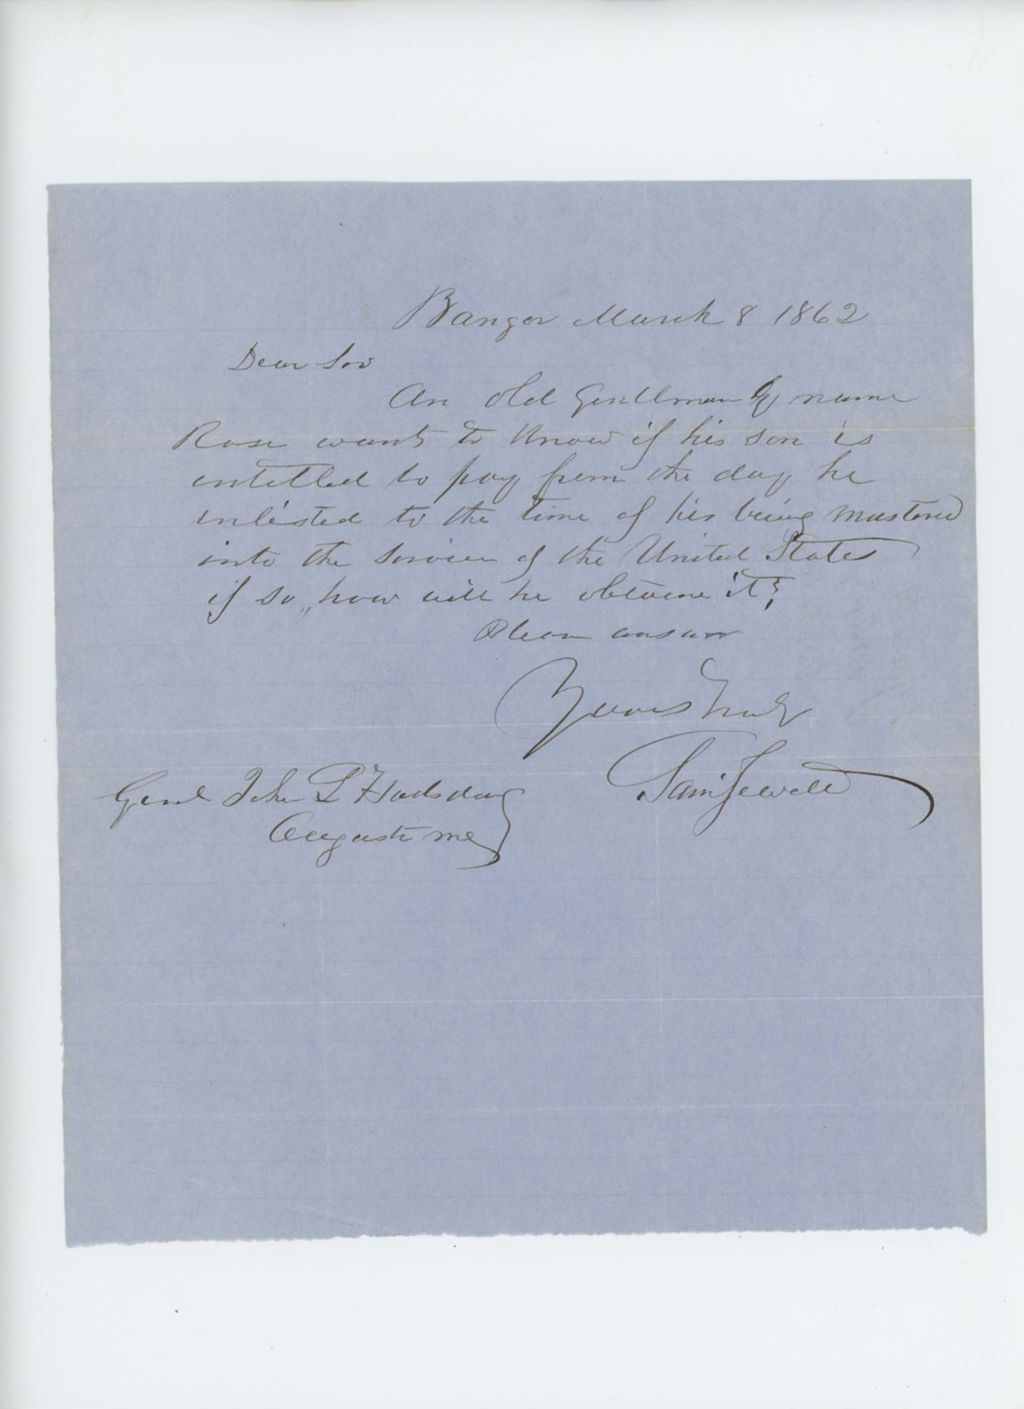 Bangor March 8 1862
Dear Sir
An old Gentleman by name
Rose wants to know if his son is
entitled to pay from the day he
enlisted to the time of his being mustered
into the service of the United States
if so, how will he obtaine it?
Please answer
Yours truly
Saml Jewett
Genl John L Hodsdon
Augusta me